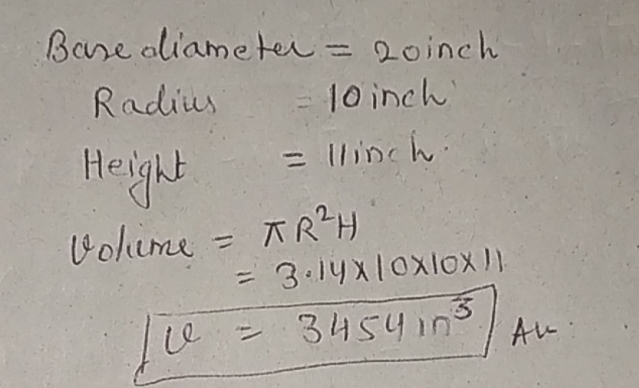 Base diameter = 20inch
Radius = 10 inch
Height = 11inch.
Volume = πR²H
= 3.14x10x10x11
V = 3454 in³ An.